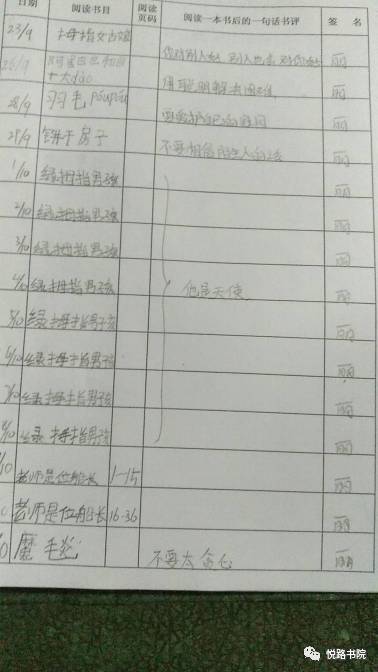 日期 阅读书目 阅读页码 阅读一本书后的一句话书评 签 名
23/9 拇指姑娘 你对别人好,别人也会对你好 丽
26/9 阿里巴巴和四十大dào 用聪明解决困难 丽
28/9 羽毛 póupóu 丽
29/9 饼干房子 不要相信陌生人的话 丽
1/10 绿拇指男孩 丽
2/10 绿拇指男孩 丽
3/10 绿拇指男孩 丽
4/10 绿拇指男孩 他是天使 丽
5/10 绿拇指男孩 丽
6/10 绿拇指男孩 丽
7/10 绿拇指男孩 丽
8/10 绿拇指男孩 丽
/10 老师是位船长 1-15 丽
老师是位船长 16-36 丽
魔毛 不要太贪心 丽
悦路书院